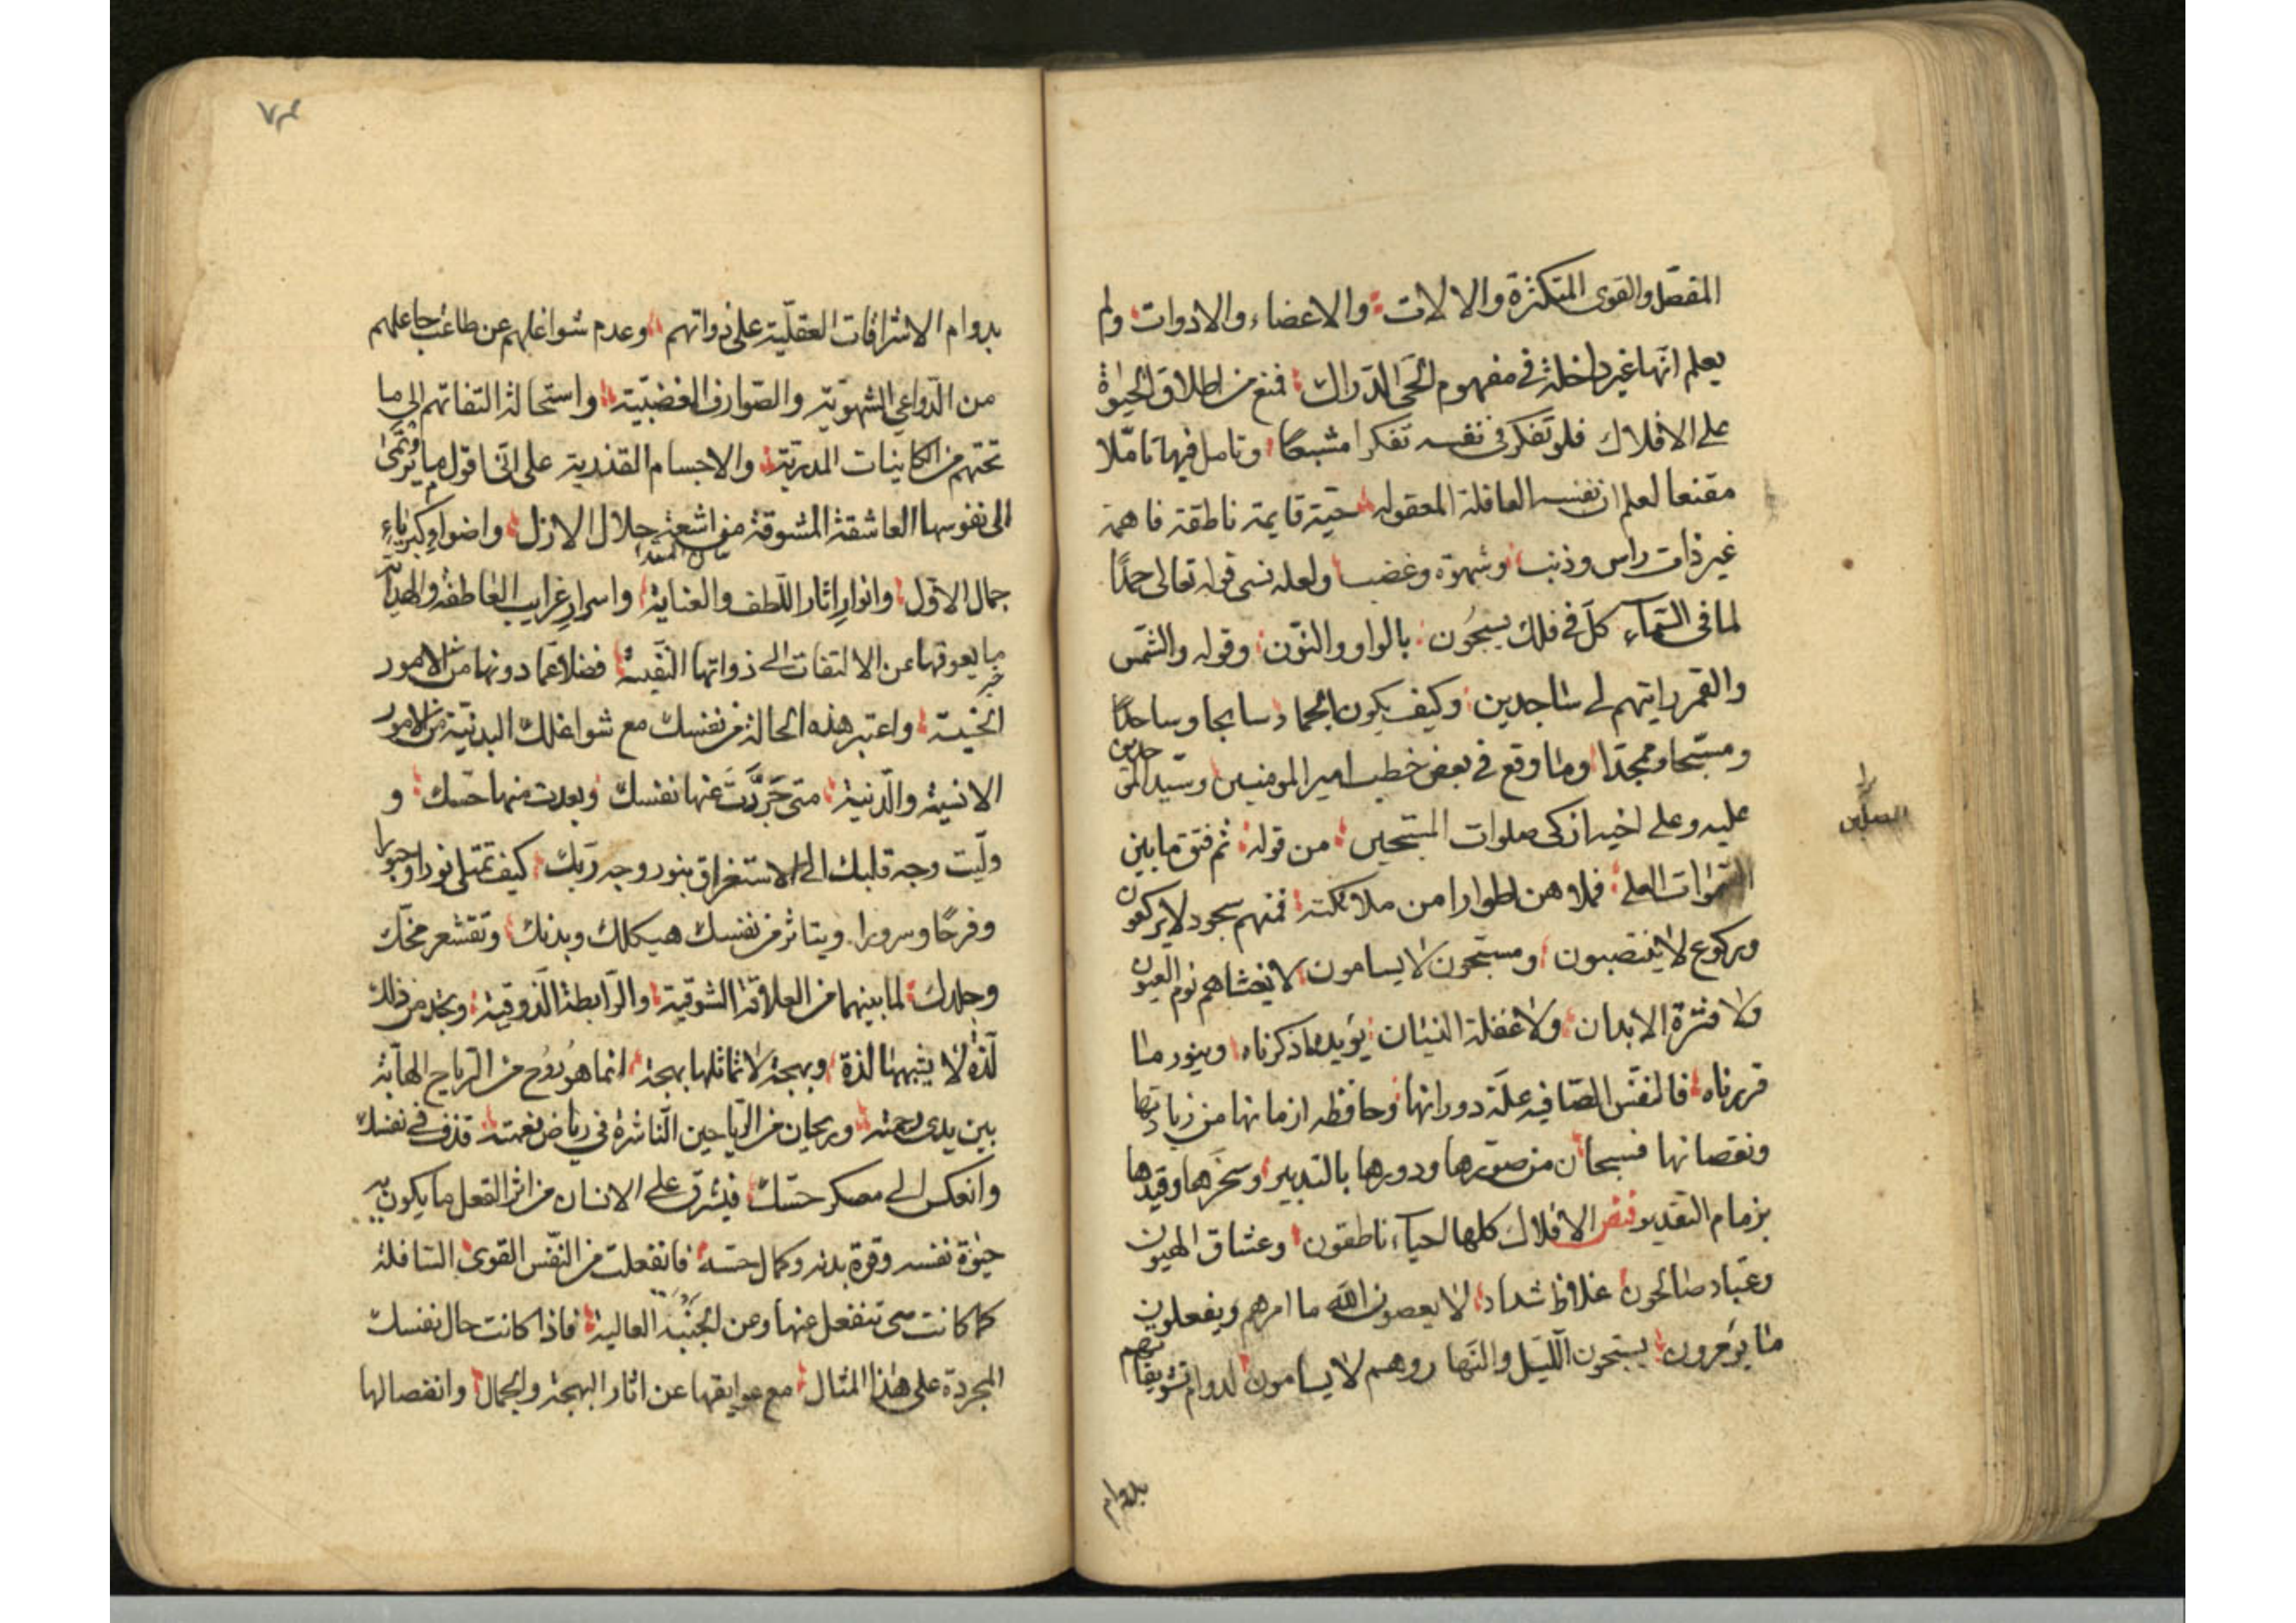 المفصل والقوى المتكثرة والالات والاعضاء والادوات ولم
يعلم انها غير داخلة في مفهوم الحى الدراك فمنع من اطلاق الحيوة
على الافلاك فلو تفكر في نفسه تفكرا مشبعا وتامل فيها تاملا
مقنعا لعلم ان نفسه العاقلة المعقوله حية قايمة ناطقة فاهمة
غير ذات راس وذنب وشهوة وغضب ولعله نسى قوله تعالى
لما فى السماء كل في فلك يسبحون بالواو والنون وقوله والشمس
والقمر رايتهم لى ساجدين وكيف يكون الجماد سابحا وساجدا
ومسبحا وممجدا وما وقع في بعض خطب امير المومنين وسيد الموحدين
عليه وعلى اخيه ازكى صلوات المسبحين من قوله ثم فتق ما بين
المصلين
السموات العلى فملاهن اطوارا من ملائكته فمنهم سجود لا يركعون
وركوع لا ينتصبون ومسبحون لا يسامون لا يغشاهم نوم العيون
ولا فترة الابدان ولا غفلة النسيان يؤيد ما ذكرناه وينور ما
قررناه فالنفس الصافيه علة دورانها وحافظه ازمانها من زيادتها
ونقصانها فسبحان من صورها ودورها بالتدبير وسخرها وقيدها
بزمام التقدير الافلاك كلها احياء ناطقون وعشاق الهيون
وعباد صالحون غلاظ شداد لا يعصون الله ما امرهم ويفعلون
ما يؤمرون يسبحون الليل والنهار وهم لا يسامون لدوام تشويقاتهم
بدوام
بدوام الاشراقات العقلية على ذواتهم وعدم شواغلهم عن طاعة جاعلهم
من الدواعي الشهوية والصوارف الغضبية واستحالة التفاتهم الى ما
تحتهم من الكاينات المدرية والاجسام القذرية على انى اقول ما يترقى
الى نفوسها العاشقة المشوقة من اشعة جلال الازل واضواء كبرياء
جمال الاول وانوار اثار اللطف والعناية واسرار غرايب العاطفة والهداية
ما يعوقها عن الالتفات الى ذواتها النفيسة فضلا عما دونها من الامور
الخسيسة واعتبر هذه الحالة من نفسك مع شواغلك البدنية من الامور
الانسية والدنية متى جردت عنها نفسك وبعدت منها حسك و
وليت وجه قلبك الى الاستغراق بنور وجه ربك كيف تمتلى نورا وحبورا
وفرحا وسرورا ويتاثر من نفسك هيكلك وبدنك وتقشعر مخك
وجلدك لما بينهما من العلاقة الشوقية والرابطة الذوقية وتجد من ذلك
لذة لا يشبهها لذة وبهجة لا تماثلها بهجة انما هو روح من الرياح الهابة
بين يدى رحمته وريحان من الرياحين الناشرة في رياض نعمته قذف في نفسك
وانعكس الى معسكر حسك فيشرق على الانسان من اثر الفعل ما يكون به
حيوة نفسه وقوة بدنه وكمال حسه فانفعلت من النفس القوى السافلة
كما كانت هى تنفعل عنها وعن الجنبة العالية فاذا كانت حال نفسك
المجردة على هذا المثال مع عوايقها عن اثار البهجة والجمال وانفصالها